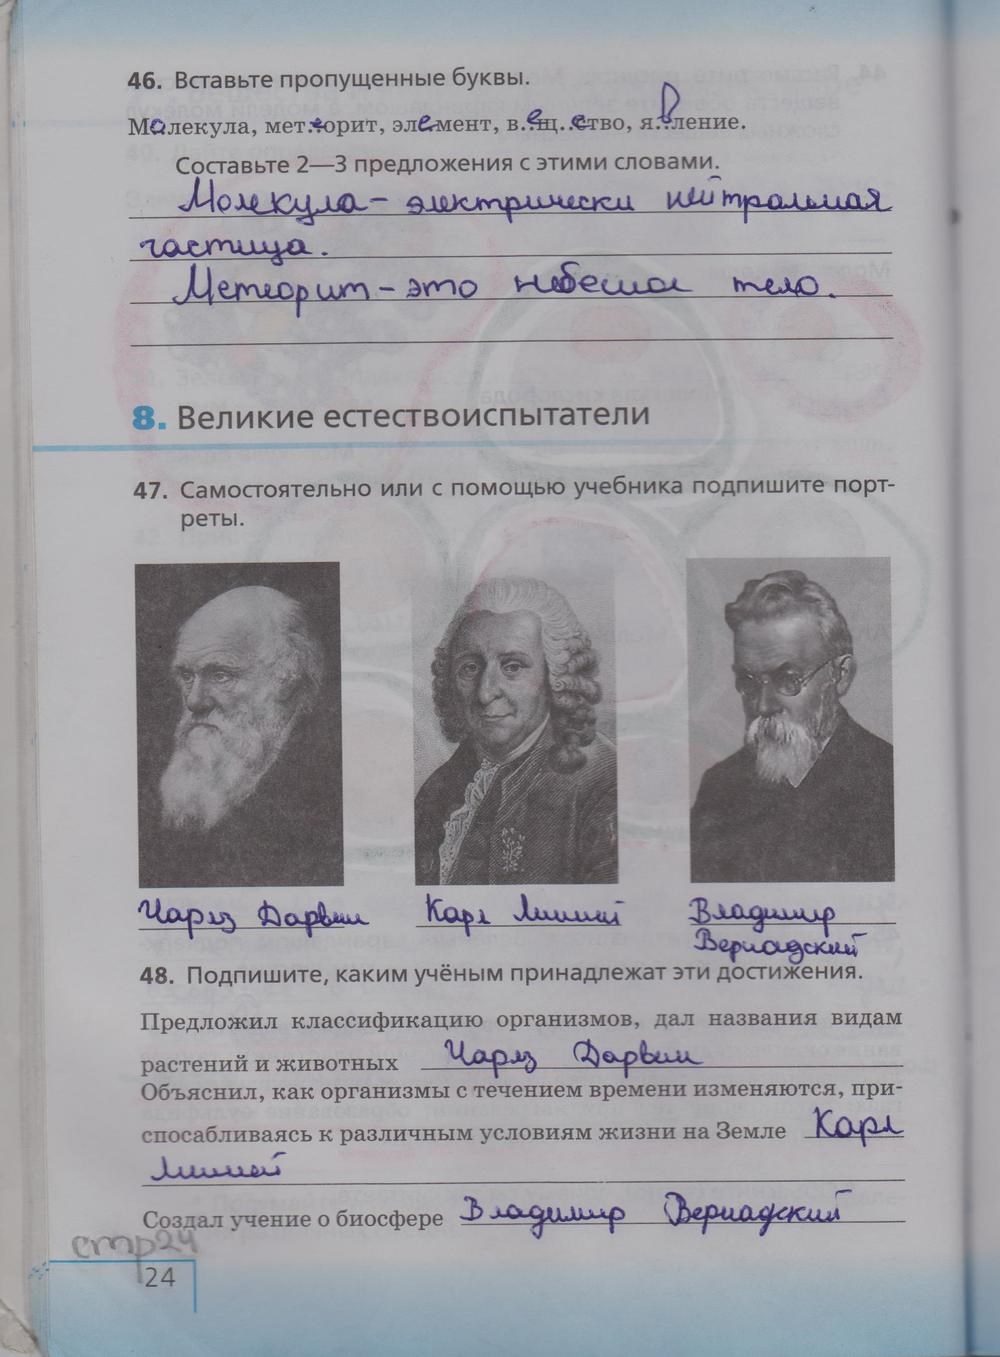 46. Вставьте пропущенные буквы.
Молекула, метеорит, элемент, вещество, явление.
Составьте 2—3 предложения с этими словами.
Молекула - электрически нейтральная
частица.
Метеорит - это небесное тело.
8. Великие естествоиспытатели
47. Самостоятельно или с помощью учебника подпишите порт-
реты.
Чарлз Дарвин
Карл Линней
Владимир
Вернадский
48. Подпишите, каким учёным принадлежат эти достижения.
Предложил классификацию организмов, дал названия видам
растений и животных Чарлз Дарвин
Объяснил, как организмы с течением времени изменяются, при-
спосабливаясь к различным условиям жизни на Земле Карл
Линней
Создал учение о биосфере Владимир Вернадский
стр24
24